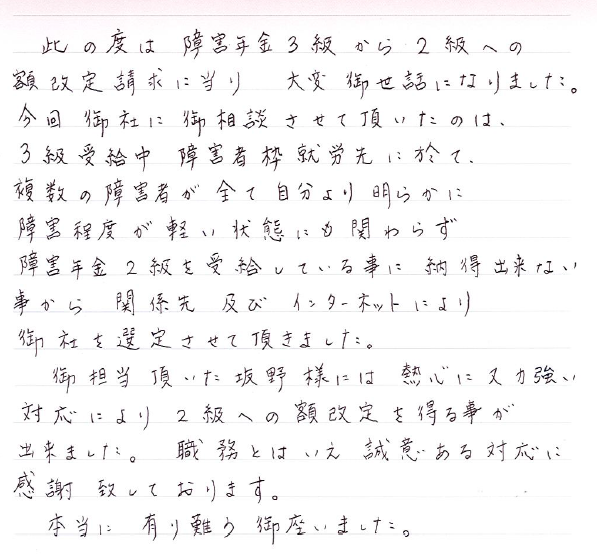 此の度は 障害年金3級から2級への
額改定請求に当り 大変御世話になりました。
今回御社に御相談させて頂いたのは、
3級受給中 障害者枠就労先に於て、
複数の障害者が全て自分より明らかに
障害程度が軽い状態にも関わらず
障害年金2級を受給している事に納得出来ない
事から 関係先及びインターネットにより
御社を選定させて頂きました。
御担当頂いた坂野様には 熱心に又力強い
対応により2級への額改定を得る事が
出来ました。 職務とはいえ 誠意ある対応に
感謝致しております。
本当に有り難う御座いました。